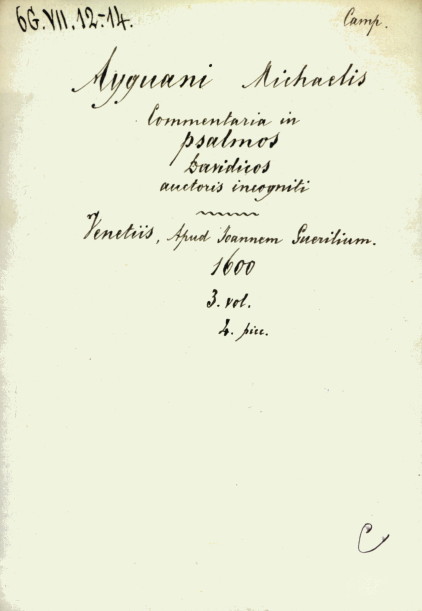 6G.VII.12-14.
Camp.
Ayguani Michaelis
Commentaria in
psalmos
Davidicos
auctoris incogniti
Venetiis, Apud Ioannem Guerilium.
1600
3. vol.
4. picc.
C